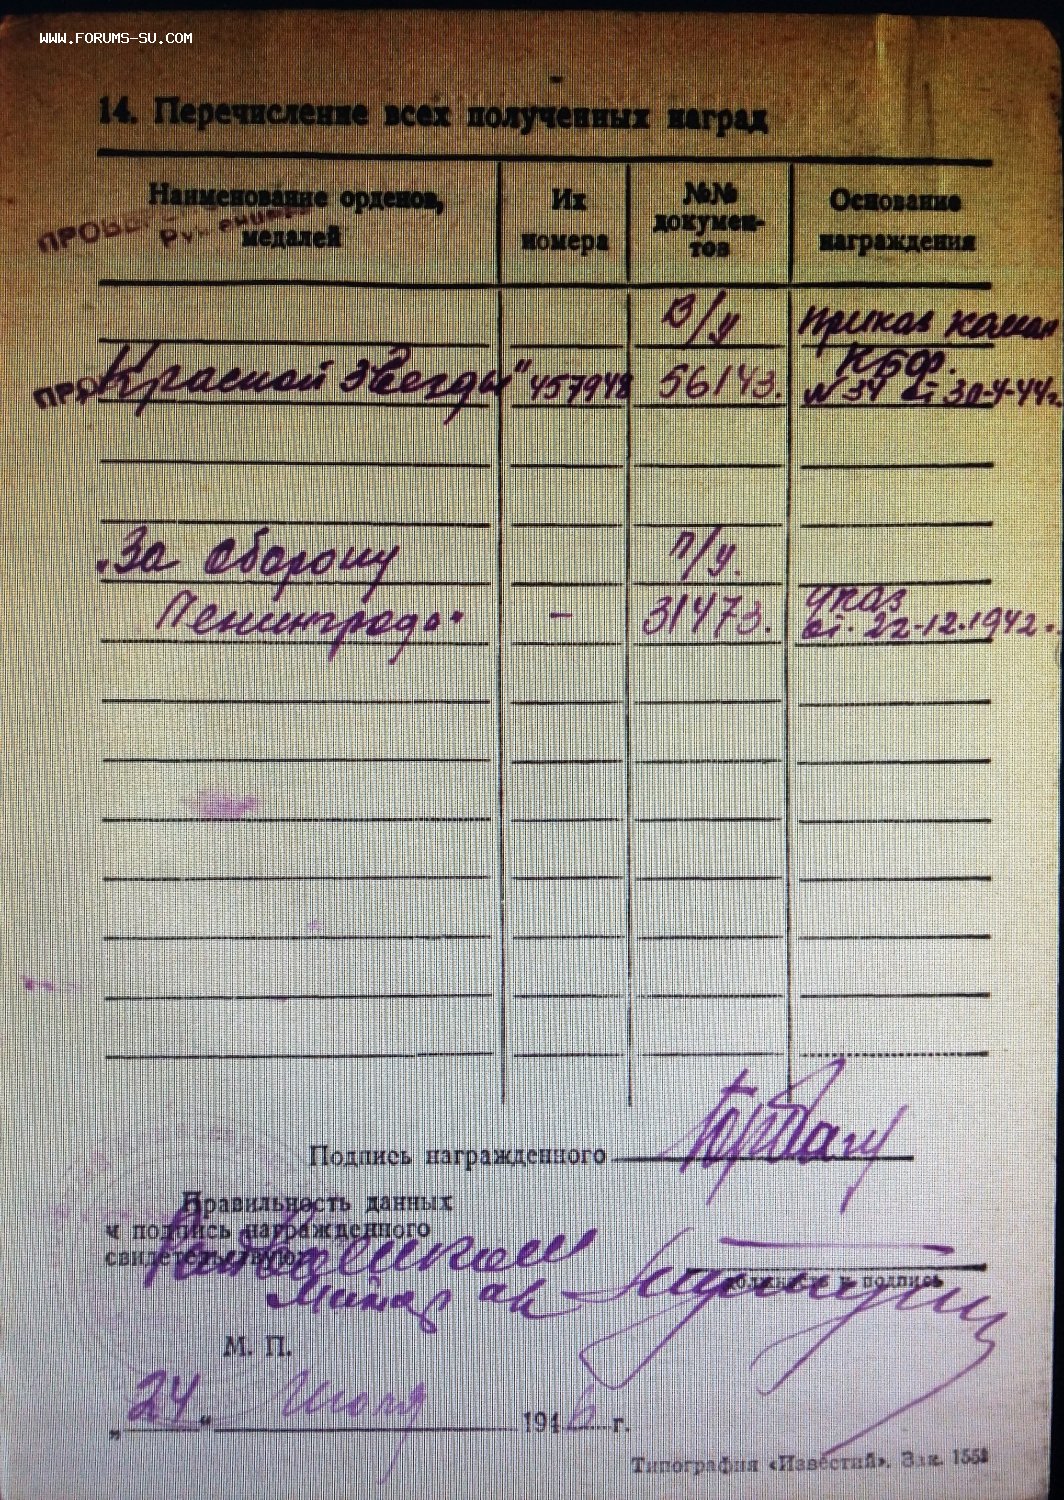 WWW.FORUMS-SU.COM
14. Перечисление всех полученных наград
Наименование орденов, медалей
Их номера
№№ документов
Основание награждения
В/у Приказ
КБФ.
Красной Звезды" 457948 56143. № 34 от 30-4-44г.
"За оборону п/у.
Ленинграда" – 31473. указ
от 22-12-1942
Подпись награжденного
Правильность данных
и подпись награжденного
свидетельствую
должность и подпись
Майор
М. П.
„24“ Июля 1946 г.
Типография «Известий». Зак. 1558